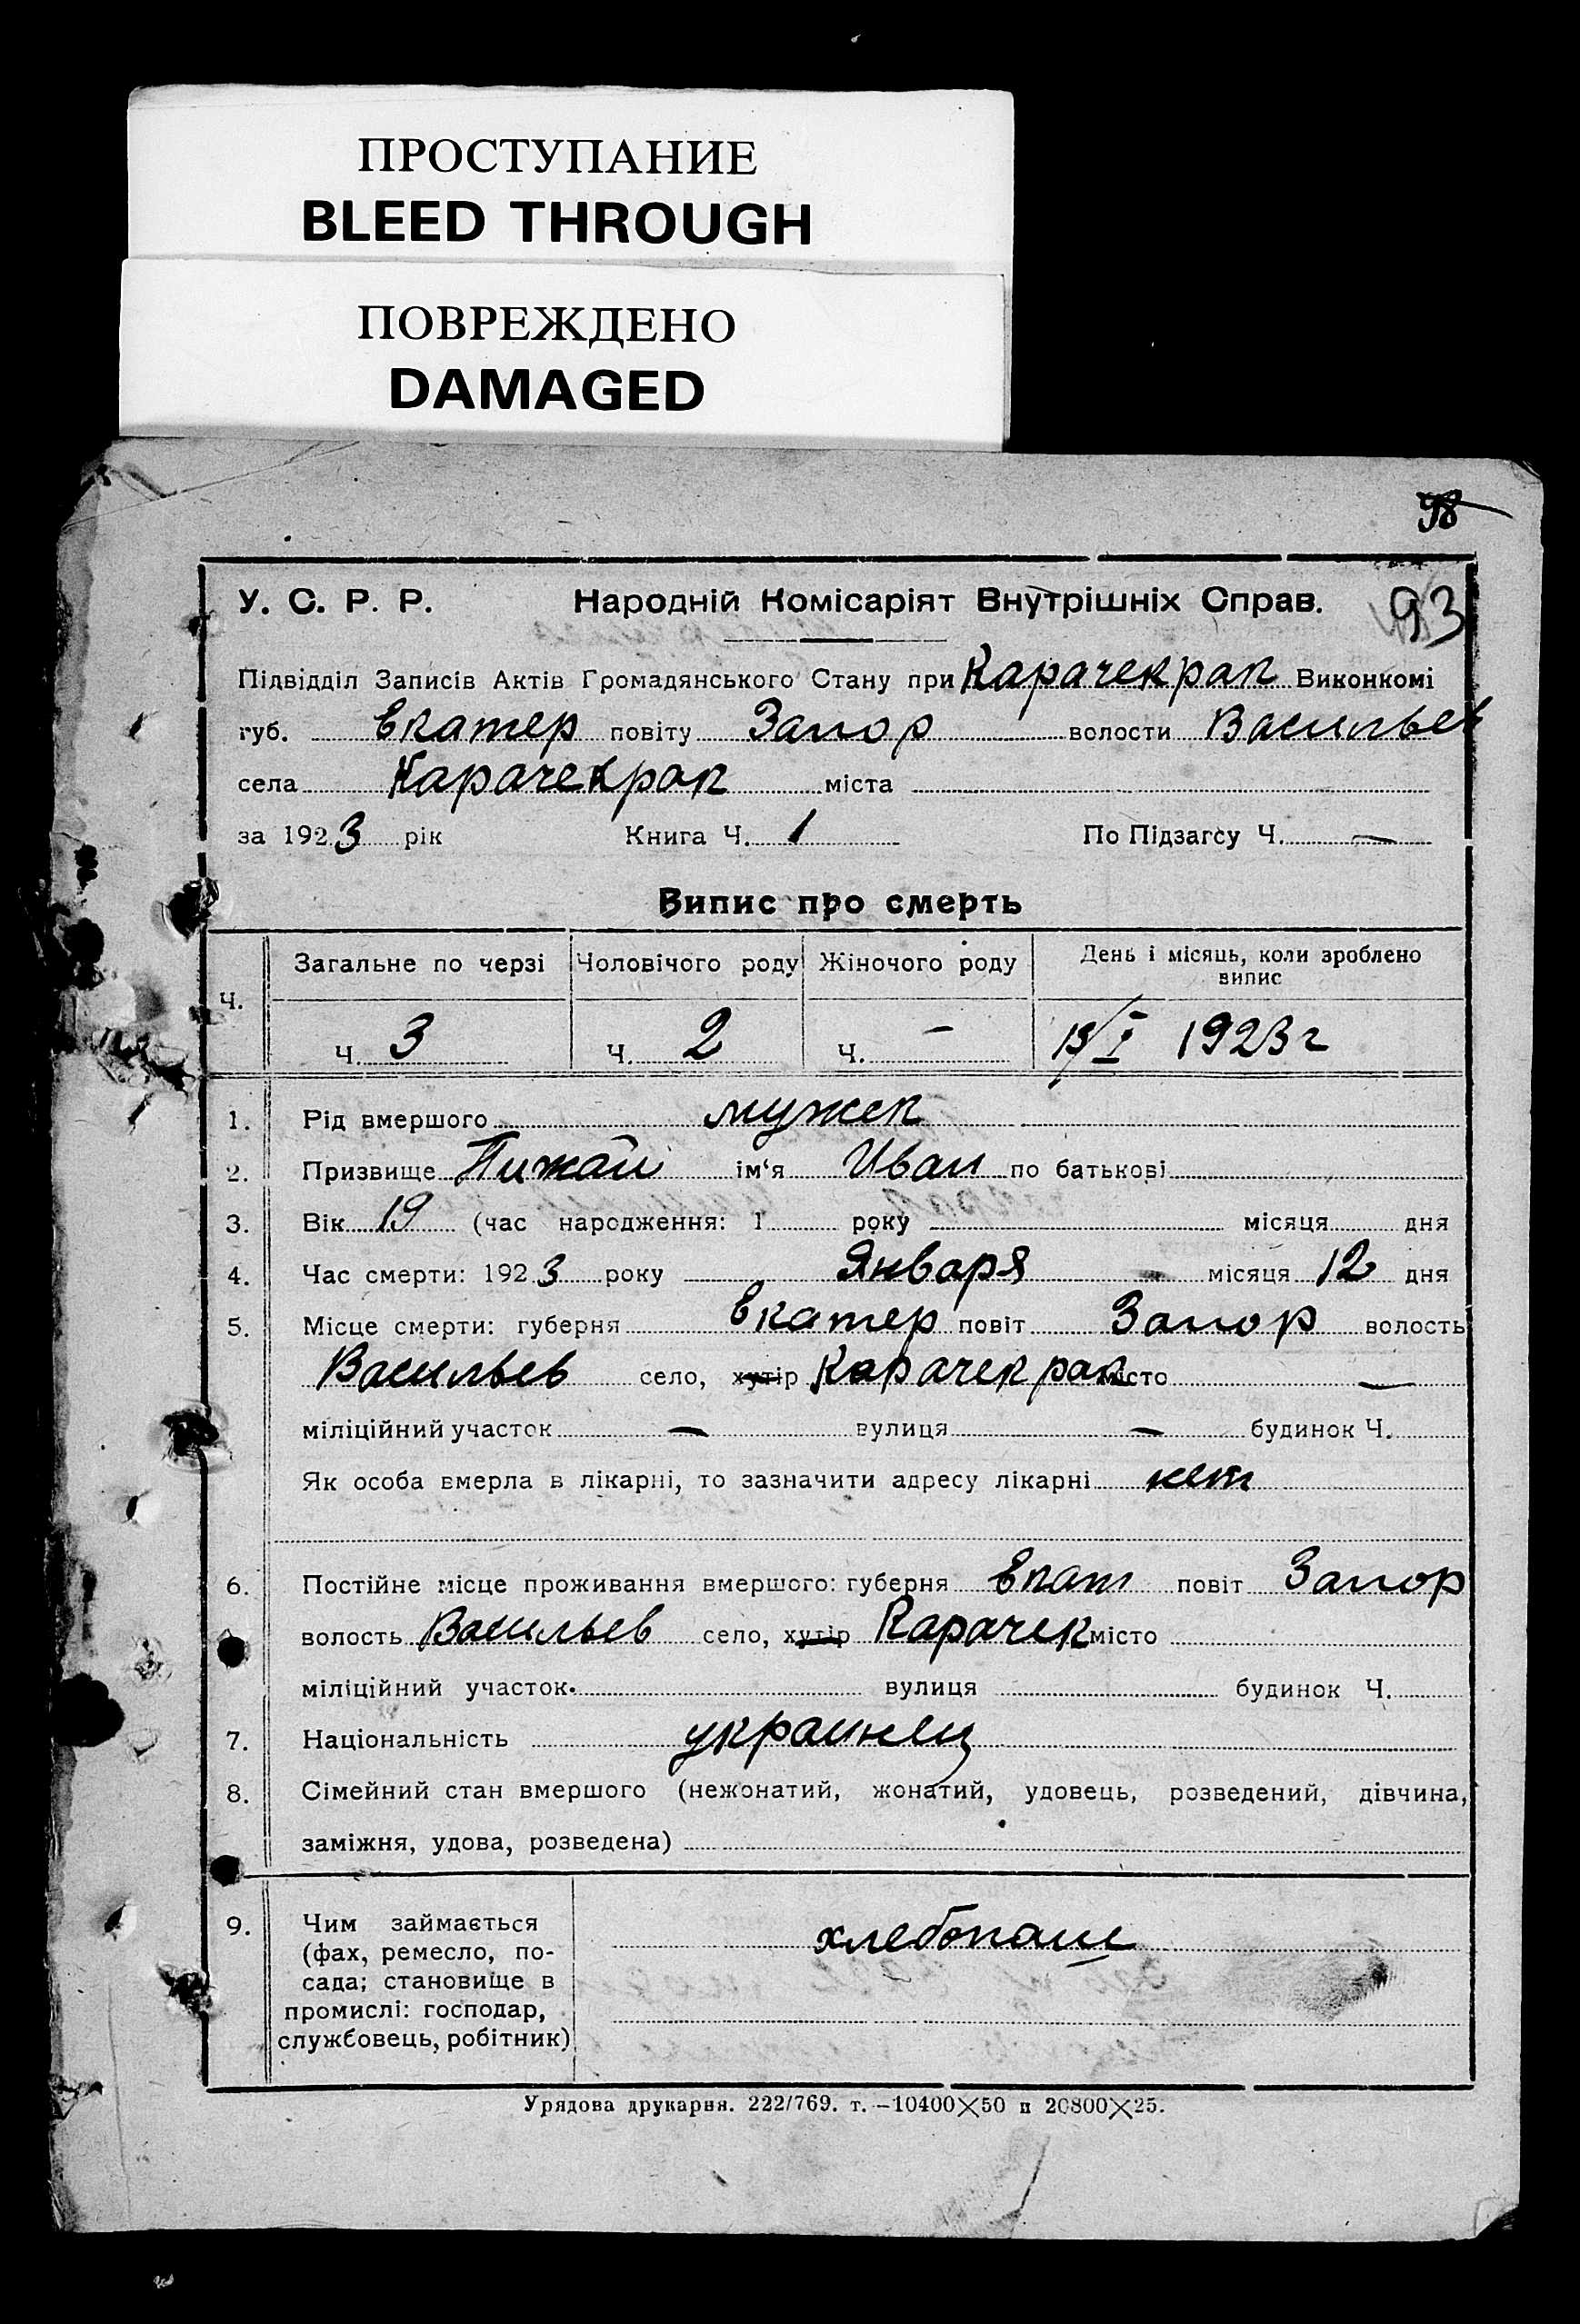 ПРОСТУПАНИЕ
BLEED THROUGH
ПОВРЕЖДЕНО
DAMAGED
98
93
У. С. Р. Р. Народній Комісаріят Внутрішніх Справ.
Підвідділ Записів Актів Громадянського Стану при Карачекрак Виконкомі
губ. Екатер повіту Запор волости Васильев
села Карачекрак міста
за 1923 рік Книга Ч. 1 По Підзагсу Ч. —
Випис про смерть
Ч. Загальне по черзі Чоловічого роду Жіночого роду День і місяць, коли зроблено
випис
Ч. 3 Ч. 2 Ч. — 13/I 1923 г
1. Рід вмершого мужск
2. Призвище Пижай ім‘я Иван по батькові
3. Вік 19 (час народження: 1 року місяця дня
4. Час смерти: 1923 року Января місяця 12 дня
5. Місце смерти: губерня Екатер повіт Запор волость
Васильев село, хутір Карачекрак місто —
міліційний участок — вулиця — будинок Ч.
Як особа вмерла в лікарні, то зазначити адресу лікарні нет
6. Постійне місце проживання вмершого: губерня Екат повіт Запор
волость Васильев село, хутір Карачек місто
міліційний участок. вулиця будинок Ч.
7. Національність украинец
8. Сімейний стан вмершого (нежонатий, жонатий, удовець, розведений, дівчина,
заміжня, удова, розведена)
9. Чим займається хлебопаш
(фах, ремесло, по-
сада; становище в
промислі: господар,
службовець, робітник)
Урядова друкарня. 222/769. т. —10400×50 п 20800×25.